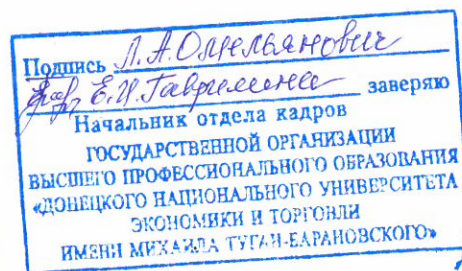 Подпись Л.А.Омельянович
Е.И. заверяю
Начальник отдела кадров
ГОСУДАРСТВЕННОЙ ОРГАНИЗАЦИИ
ВЫСШЕГО ПРОФЕССИОНАЛЬНОГО ОБРАЗОВАНИЯ
«ДОНЕЦКОГО НАЦИОНАЛЬНОГО УНИВЕРСИТЕТА
ЭКОНОМИКИ И ТОРГОВЛИ
ИМЕНИ МИХАИЛА ТУГАН-БАРАНОВСКОГО»